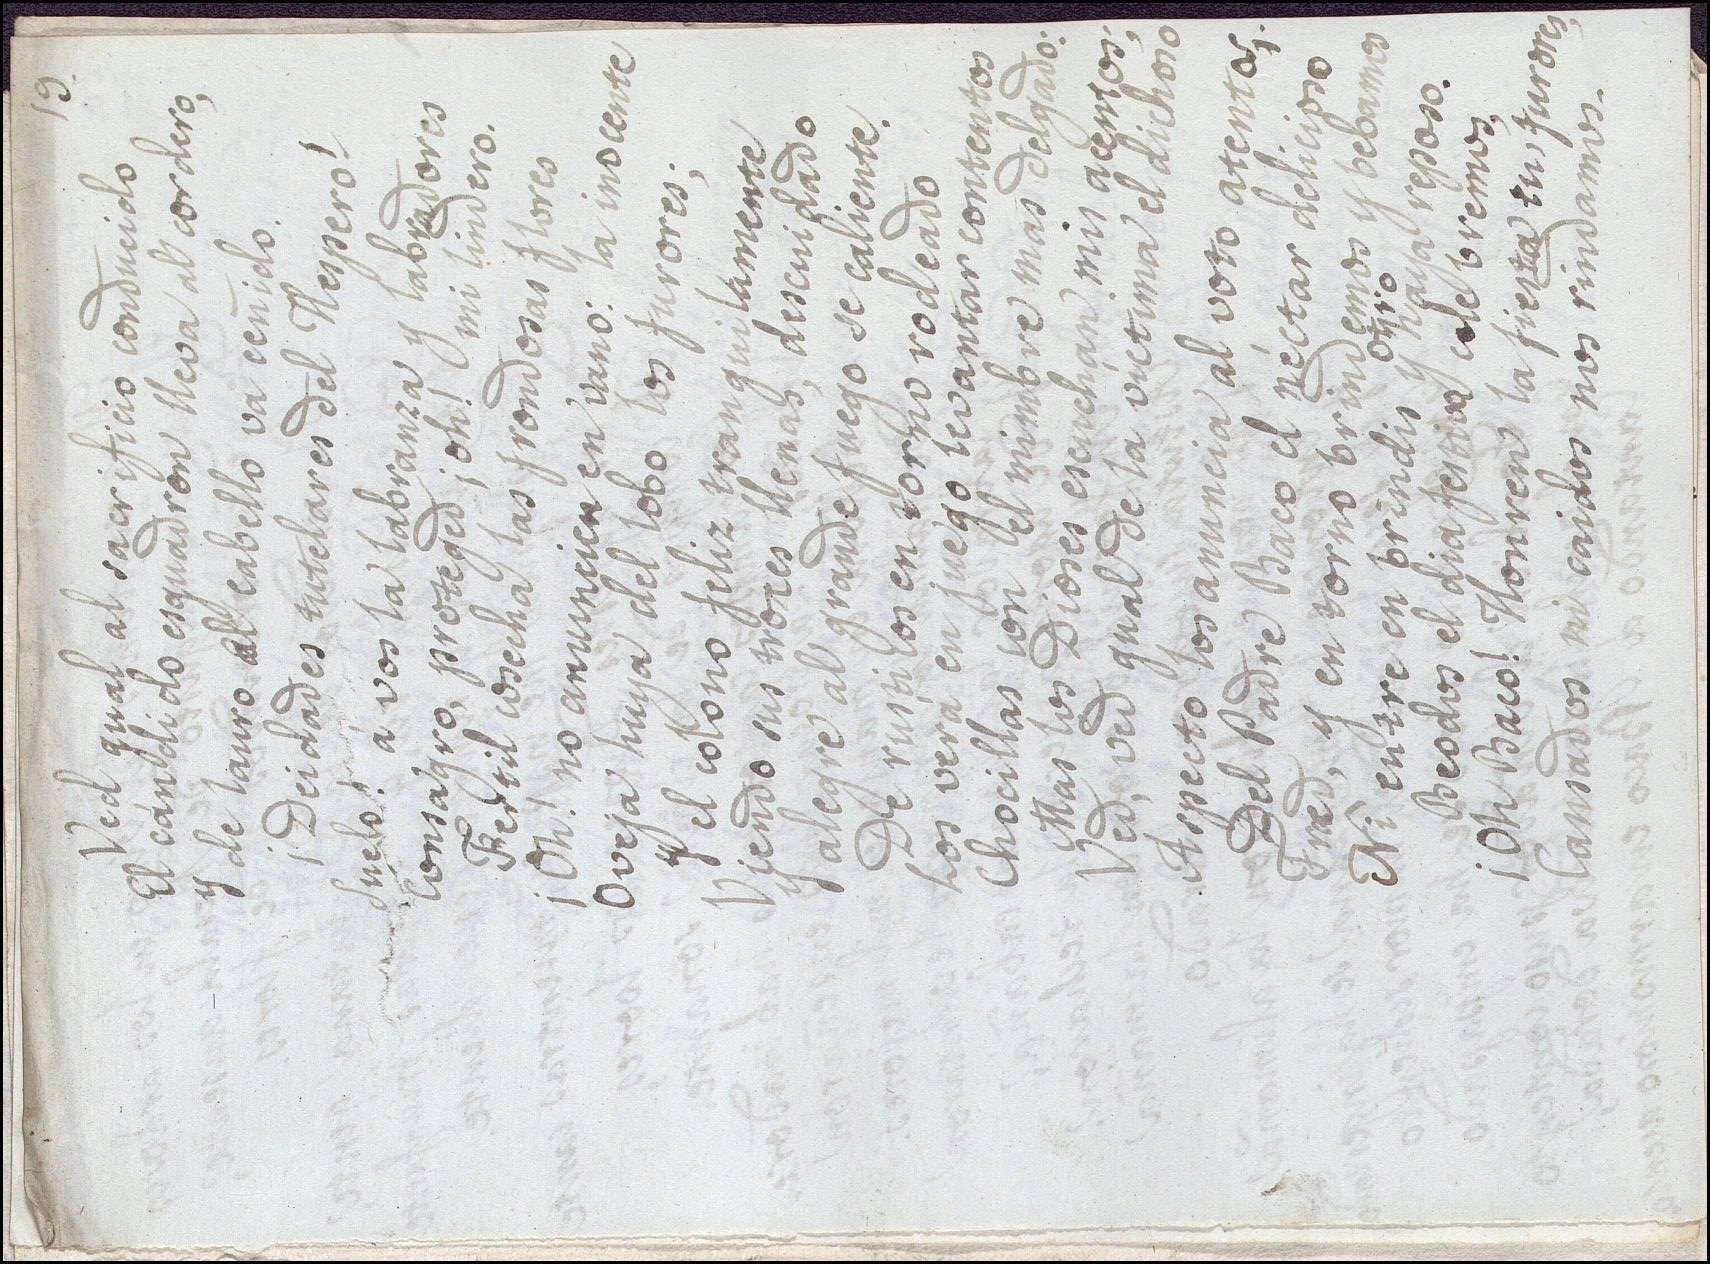 19.
Ved qual al sacrificio conducido
El cándido esquadron lleva al cordero,
y de lauro al cabello va ceñido.
¡Deidades tutelares del Hespero!
Suelo! á vos la labranza y labradores
Consagro, proteged ¡oh! mi lindero.
Fertil cosecha las frondosas flores
¡Oh! no anuncien en vano: la inocente
Oveja huya del lobo los furores;
y el colono feliz tranquilamente
Viendo sus troxes llenas, descuidado
y alegre al grande fuego se caliente.
De rustilos en torno rodeado
Los verá en juego levantar contentos
Chocillas con el mimbre mas delgado:
Mas los Dioses escuchan mis acentos;
Ved, ved qual de la victima el dichoso
Aspecto los anuncia al voto atentos.
Del Padre Baco el néctar delicioso
Tred, y en torno brindemos y bebamos
Ni entre en brindis otro y haya reposo.
Beodos el dia festivo celebremos,
¡Oh Baco! Honren la fiesta tus furores,
Cansados ni caidos nos rindamos.